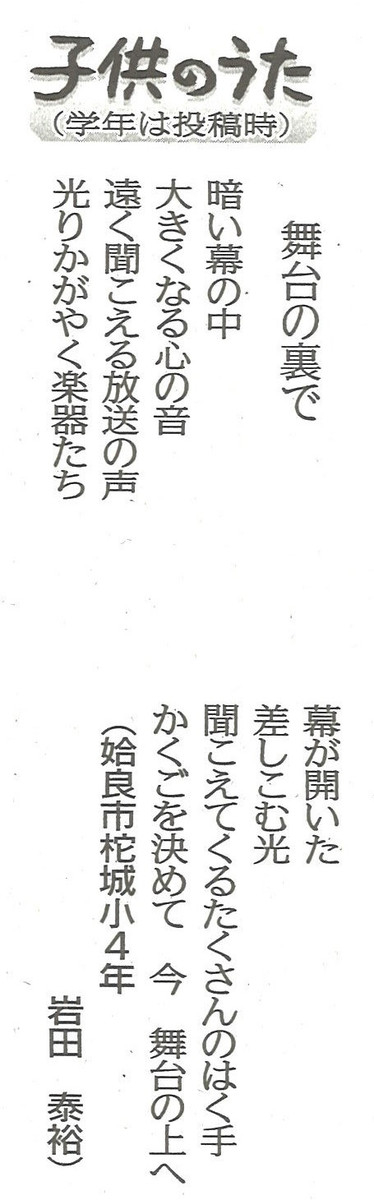 子供のうた
（学年は投稿時）
舞台の裏で
暗い幕の中
大きくなる心の音
遠く聞こえる放送の声
光りかがやく楽器たち
幕が開いた
差しこむ光
聞こえてくるたくさんのはく手
かくごを決めて　今　舞台の上へ
（姶良市柁城小４年
岩田　泰裕）